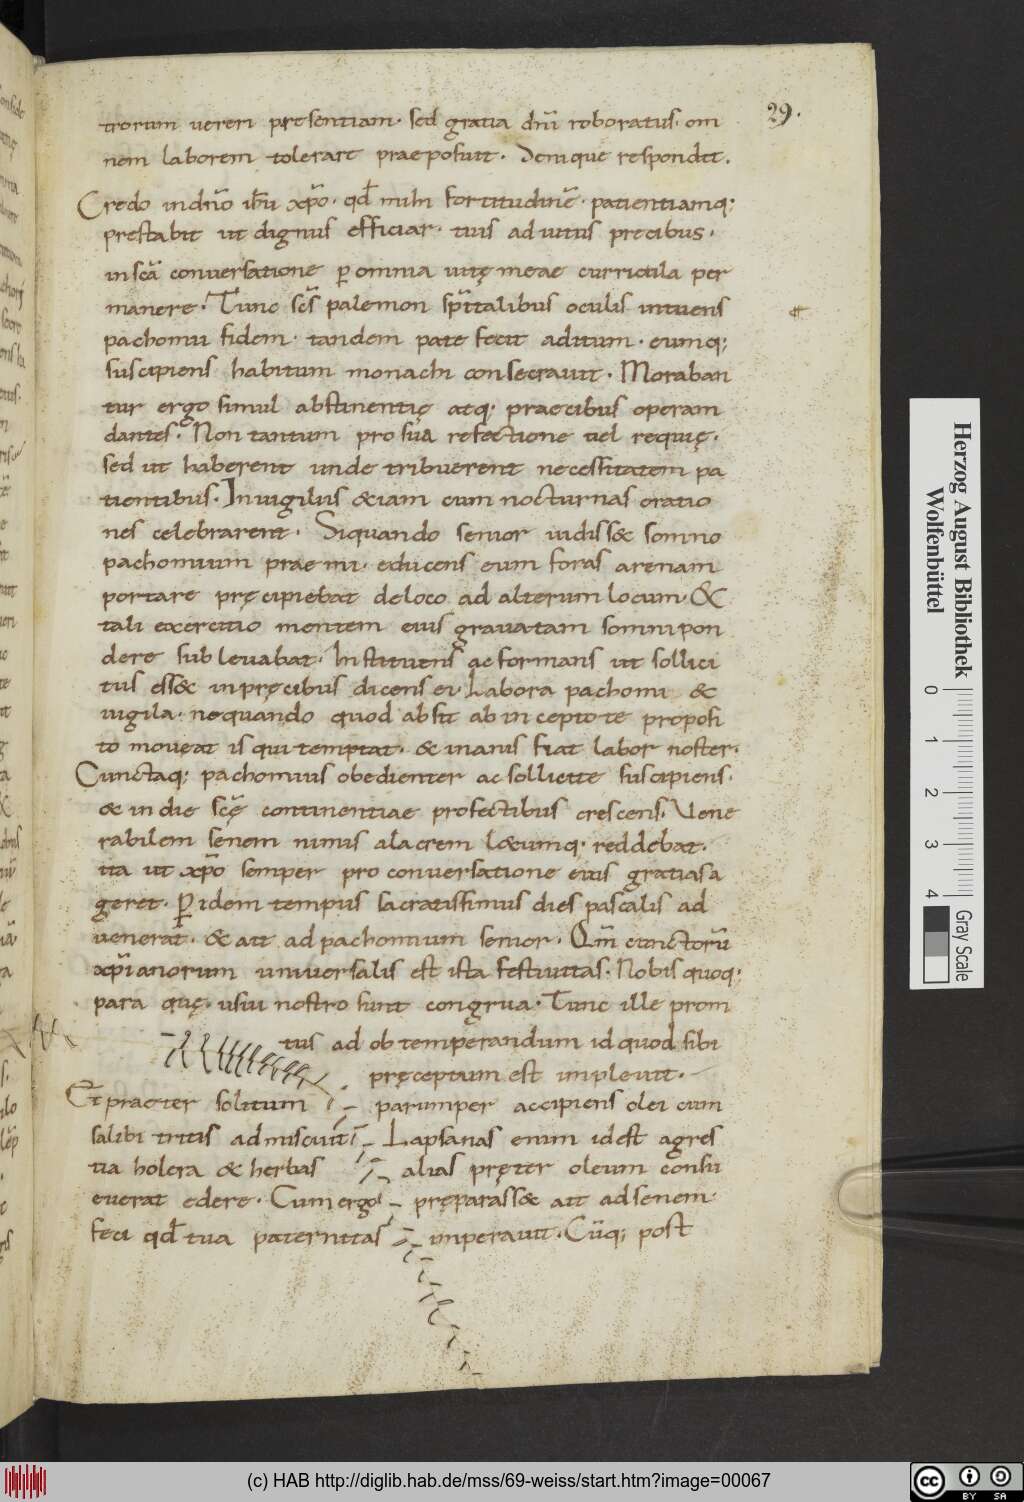 29.
trorum uereri presentiam· sed gratia dn̄i roboratus· om
nem laborem tolerare praeposuit. Denique respondit.
Credo in dn̄o ih̄u xp̄o· qd̄ mihi fortitudinē· patientiamq;
prestabit ut dignus efficiar· tuis adiutus precibus·
in sc̄a conuersatione ꝑ omnia uitę meae curricula per
manere· Tunc sc̄s palemon sp̄italibus oculis intuens
pachomii fidem· tandem patefecit aditum· eumq;
suscipiens habitum monachi consecrauit· Moraban
tur ergo simul abstinentię atq; praecibus operam
dantes· Non tantum pro sua refectione uel requię·
sed ut haberent unde tribuerent necessitatem pa
tientibus· In uigiliis &iam cum nocturnas oratio
nes celebrarent· Siquando senior uidiss& somno
pachomium praemi· educens eum foras arenam
portare pręcipiebat de loco ad alterum locum· &
tali exercitio mentem eius grauatam somni pon
dere subleuabat· Instituens ac formans ut sollici
tus ess& in pręcibus dicens ei· Labora pachomi &
uigila· nequando quod absit ab incepto te proposi
to moueat is qui temptat· & inanis fiat labor noster·
Cunctaq; pachomius obedienter ac sollicite suscipiens·
& in die sc̄ę continentiae profectibus crescens· Uene
rabilem senem nimis alacrem l&umq; reddebat·
ita ut xp̄o semper pro conuersatione eius gratias a
geret· ꝑ idem tempus sacratissimus dies pascalis ad
uenerat· & ait ad pachomium senior· Qm̄ cunctorū
xp̄ianorum uniuersalis est ista festiuitas· Nobis quoq;
para quę· usui nostro sunt congrua· Tunc ille prom
tus ad obtemperandum id quod sibi
pręceptum est impleuit·
Et praeter solitum parumper accipiens olei cum
salibi tritis admiscuit Lapsanas enim id est agres
tia holera & herbas alias pręter oleum consu
euerat edere· Cum ergo pręparass& ait ad senem
feci qd̄ tua paternitas imperauit· Cūq; post
Herzog August Bibliothek
Wolfenbüttel
0 1 2 3 4
Gray Scale
(c) HAB http://diglib.hab.de/mss/69-weiss/start.htm?image=00067
cc BY SA